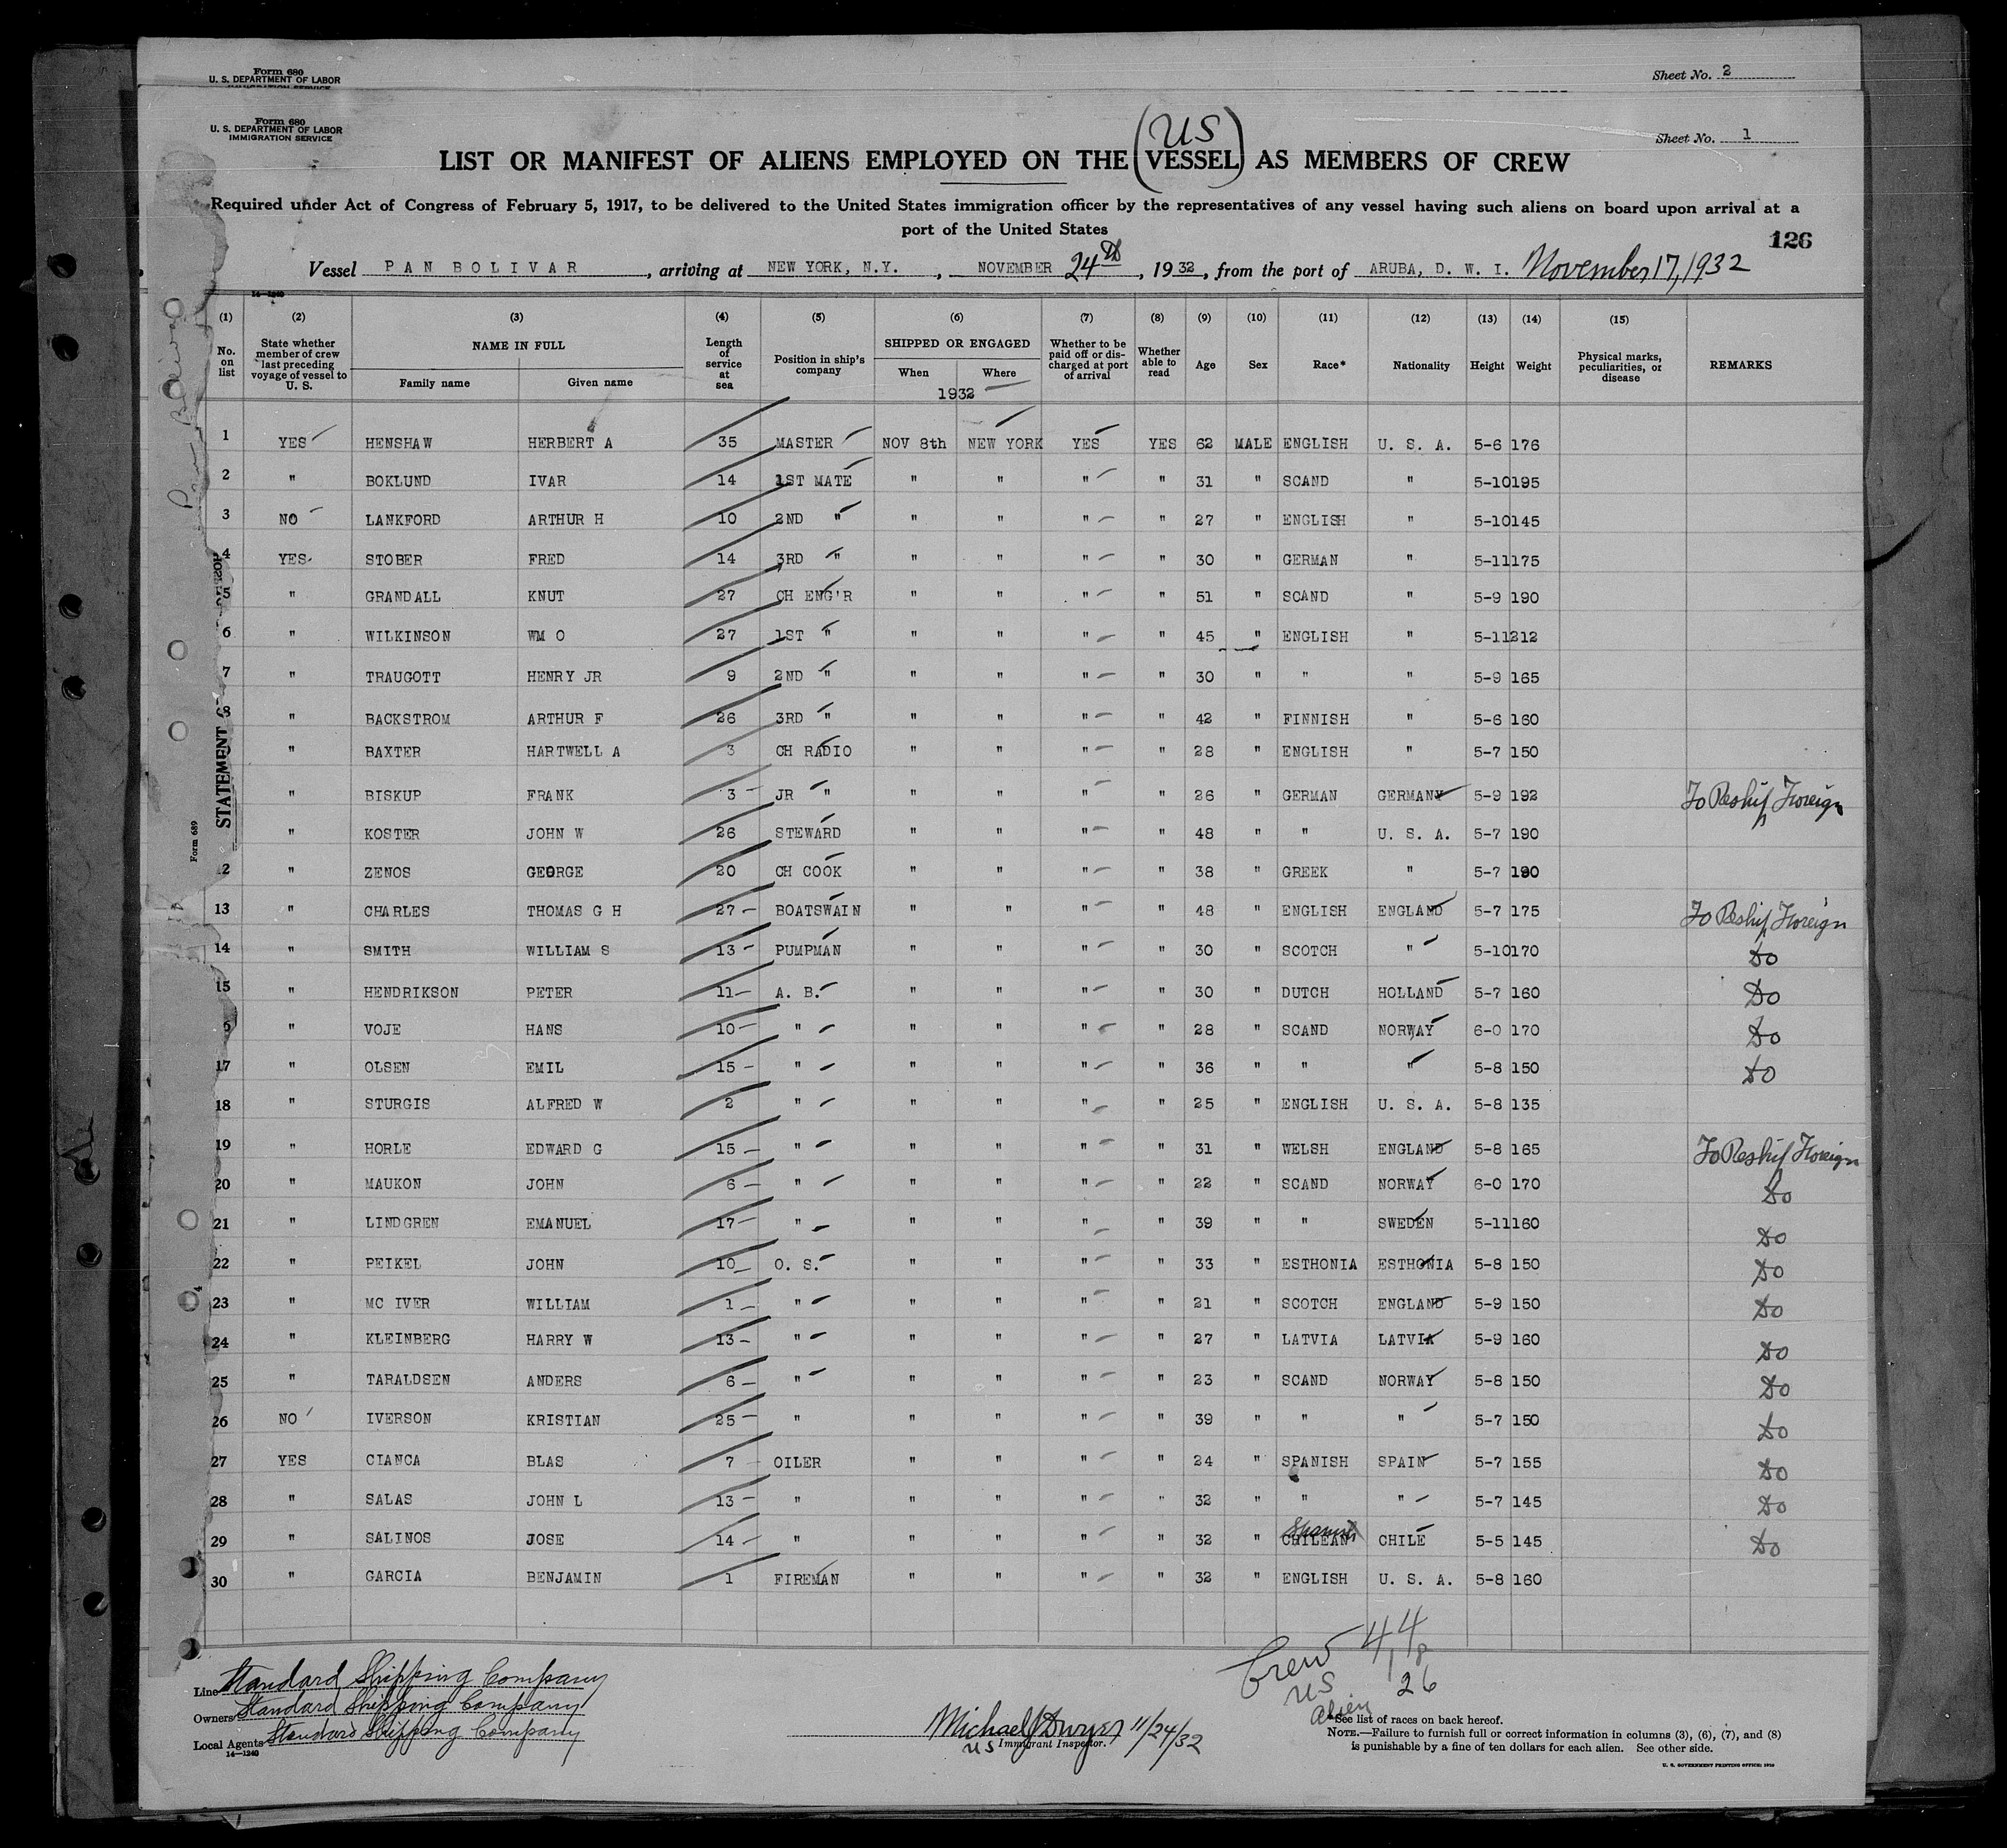 Form 680
U. S. DEPARTMENT OF LABOR
IMMIGRATION SERVICE
Sheet No. 2
Form 680
U. S. DEPARTMENT OF LABOR
IMMIGRATION SERVICE
Sheet No. 1
(US)
LIST OR MANIFEST OF ALIENS EMPLOYED ON THE VESSEL AS MEMBERS OF CREW
Required under Act of Congress of February 5, 1917, to be delivered to the United States immigration officer by the representatives of any vessel having such aliens on board upon arrival at a
port of the United States
126
Vessel PAN BOLIVAR, arriving at NEW YORK, N.Y., NOVEMBER 24th, 1932, from the port of ARUBA, D. W. I. November 17, 1932
14-1240
(1) (2) (3) (4) (5) (6) (7) (8) (9) (10) (11) (12) (13) (14) (15)
No. on list
State whether member of crew last preceding voyage of vessel to U. S.
NAME IN FULL
Family name Given name
Length of service at sea
Position in ship's company
SHIPPED OR ENGAGED
When Where
1932
Whether to be paid off or discharged at port of arrival
Whether able to read
Age Sex Race* Nationality Height Weight
Physical marks, peculiarities, or disease
REMARKS
1 YES HENSHAW HERBERT A 35 MASTER NOV 8th NEW YORK YES YES 62 MALE ENGLISH U. S. A. 5-6 176
2 " BOKLUND IVAR 14 1ST MATE " " " " 31 " SCAND " 5-10 195
3 NO LANKFORD ARTHUR H 10 2ND " " " " " 27 " ENGLISH " 5-10 145
4 YES STOBER FRED 14 3RD " " " " " 30 " GERMAN " 5-11 175
5 " GRANDALL KNUT 27 CH ENG'R " " " " 51 " SCAND " 5-9 190
6 " WILKINSON WM O 27 1ST " " " " " 45 " ENGLISH " 5-11 212
7 " TRAUGOTT HENRY JR 9 2ND " " " " " 30 " " " 5-9 165
8 " BACKSTROM ARTHUR F 26 3RD " " " " " 42 " FINNISH " 5-6 160
" BAXTER HARTWELL A 3 CH RADIO " " " " 28 " ENGLISH " 5-7 150
" BISKUP FRANK 3 JR " " " " " 26 " GERMAN GERMANY 5-9 192 To Reship Foreign
" KOSTER JOHN W 26 STEWARD " " " " 48 " " U. S. A. 5-7 190
2 " ZENOS GEORGE 20 CH COOK " " " " 38 " GREEK " 5-7 190
13 " CHARLES THOMAS G H 27 BOATSWAIN " " " " 48 " ENGLISH ENGLAND 5-7 175 To Reship Foreign
14 " SMITH WILLIAM S 13 PUMPMAN " " " " 30 " SCOTCH " 5-10 170 Do
15 " HENDRIKSON PETER 11 A. B. " " " " 30 " DUTCH HOLLAND 5-7 160 Do
6 " VOJE HANS 10 " " " " " 28 " SCAND NORWAY 6-0 170 Do
17 " OLSEN EMIL 15 " " " " " 36 " " " 5-8 150 Do
18 " STURGIS ALFRED W 2 " " " " " 25 " ENGLISH U. S. A. 5-8 135
19 " HORLE EDWARD G 15 " " " " " 31 " WELSH ENGLAND 5-8 165 To Reship Foreign
20 " MAUKON JOHN 6 " " " " " 22 " SCAND NORWAY 6-0 170 Do
21 " LINDGREN EMANUEL 17 " " " " " 39 " " SWEDEN 5-11 160 Do
22 " PEIKEL JOHN 10 O. S. " " " " 33 " ESTHONIA ESTHONIA 5-8 150 Do
23 " MC IVER WILLIAM 1 " " " " " 21 " SCOTCH ENGLAND 5-9 150 Do
24 " KLEINBERG HARRY W 13 " " " " " 27 " LATVIA LATVIA 5-9 160 Do
25 " TARALDSEN ANDERS 6 " " " " " 23 " SCAND NORWAY 5-8 150 Do
26 NO IVERSON KRISTIAN 25 " " " " " 39 " " " 5-7 150 Do
27 YES CIANCA BLAS 7 OILER " " " " 24 " SPANISH SPAIN 5-7 155 Do
28 " SALAS JOHN L 13 " " " " " 32 " " " 5-7 145 Do
29 " SALINOS JOSE 14 " " " " " 32 " CHILEAN Spanish CHILE 5-5 145 Do
30 " GARCIA BENJAMIN 1 FIREMAN " " " " 32 " ENGLISH U. S. A. 5-8 160
Pan Bolivar
STATEMENT
Form 689
Crew 44
US 18
Alien 26
Line Standard Shipping Company
Owners Standard Shipping Company
Local Agents Standard Shipping Company
14-1240
Michael J Dwyer 11/24/32
US Immigrant Inspector.
*See list of races on back hereof.
NOTE.—Failure to furnish full or correct information in columns (3), (6), (7), and (8)
is punishable by a fine of ten dollars for each alien. See other side.